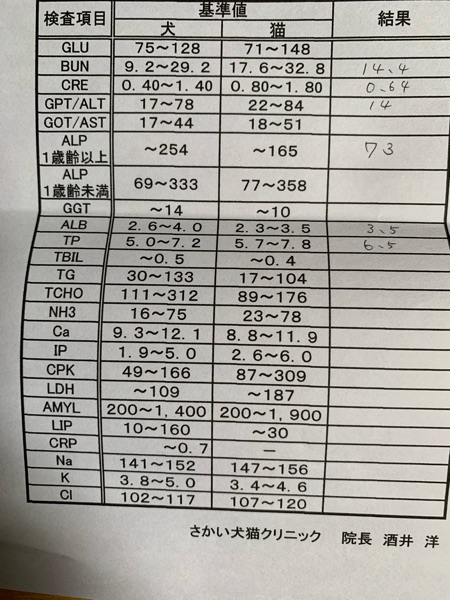 検査項目 基準値 結果
犬 猫
GLU 75～128 71～148
BUN 9.2～29.2 17.6～32.8 14.4
CRE 0.40～1.40 0.80～1.80 0.64
GPT/ALT 17～78 22～84 14
GOT/AST 17～44 18～51
ALP
1歳齢以上 ～254 ～165 73
ALP
1歳齢未満 69～333 77～358
GGT ～14 ～10
ALB 2.6～4.0 2.3～3.5 3.5
TP 5.0～7.2 5.7～7.8 6.5
TBIL ～0.5 ～0.4
TG 30～133 17～104
TCHO 111～312 89～176
NH3 16～75 23～78
Ca 9.3～12.1 8.8～11.9
IP 1.9～5.0 2.6～6.0
CPK 49～166 87～309
LDH ～109 ～187
AMYL 200～1,400 200～1,900
LIP 10～160 ～30
CRP ～0.7 －
Na 141～152 147～156
K 3.8～5.0 3.4～4.6
Cl 102～117 107～120
さかい犬猫クリニック 院長 酒井 洋